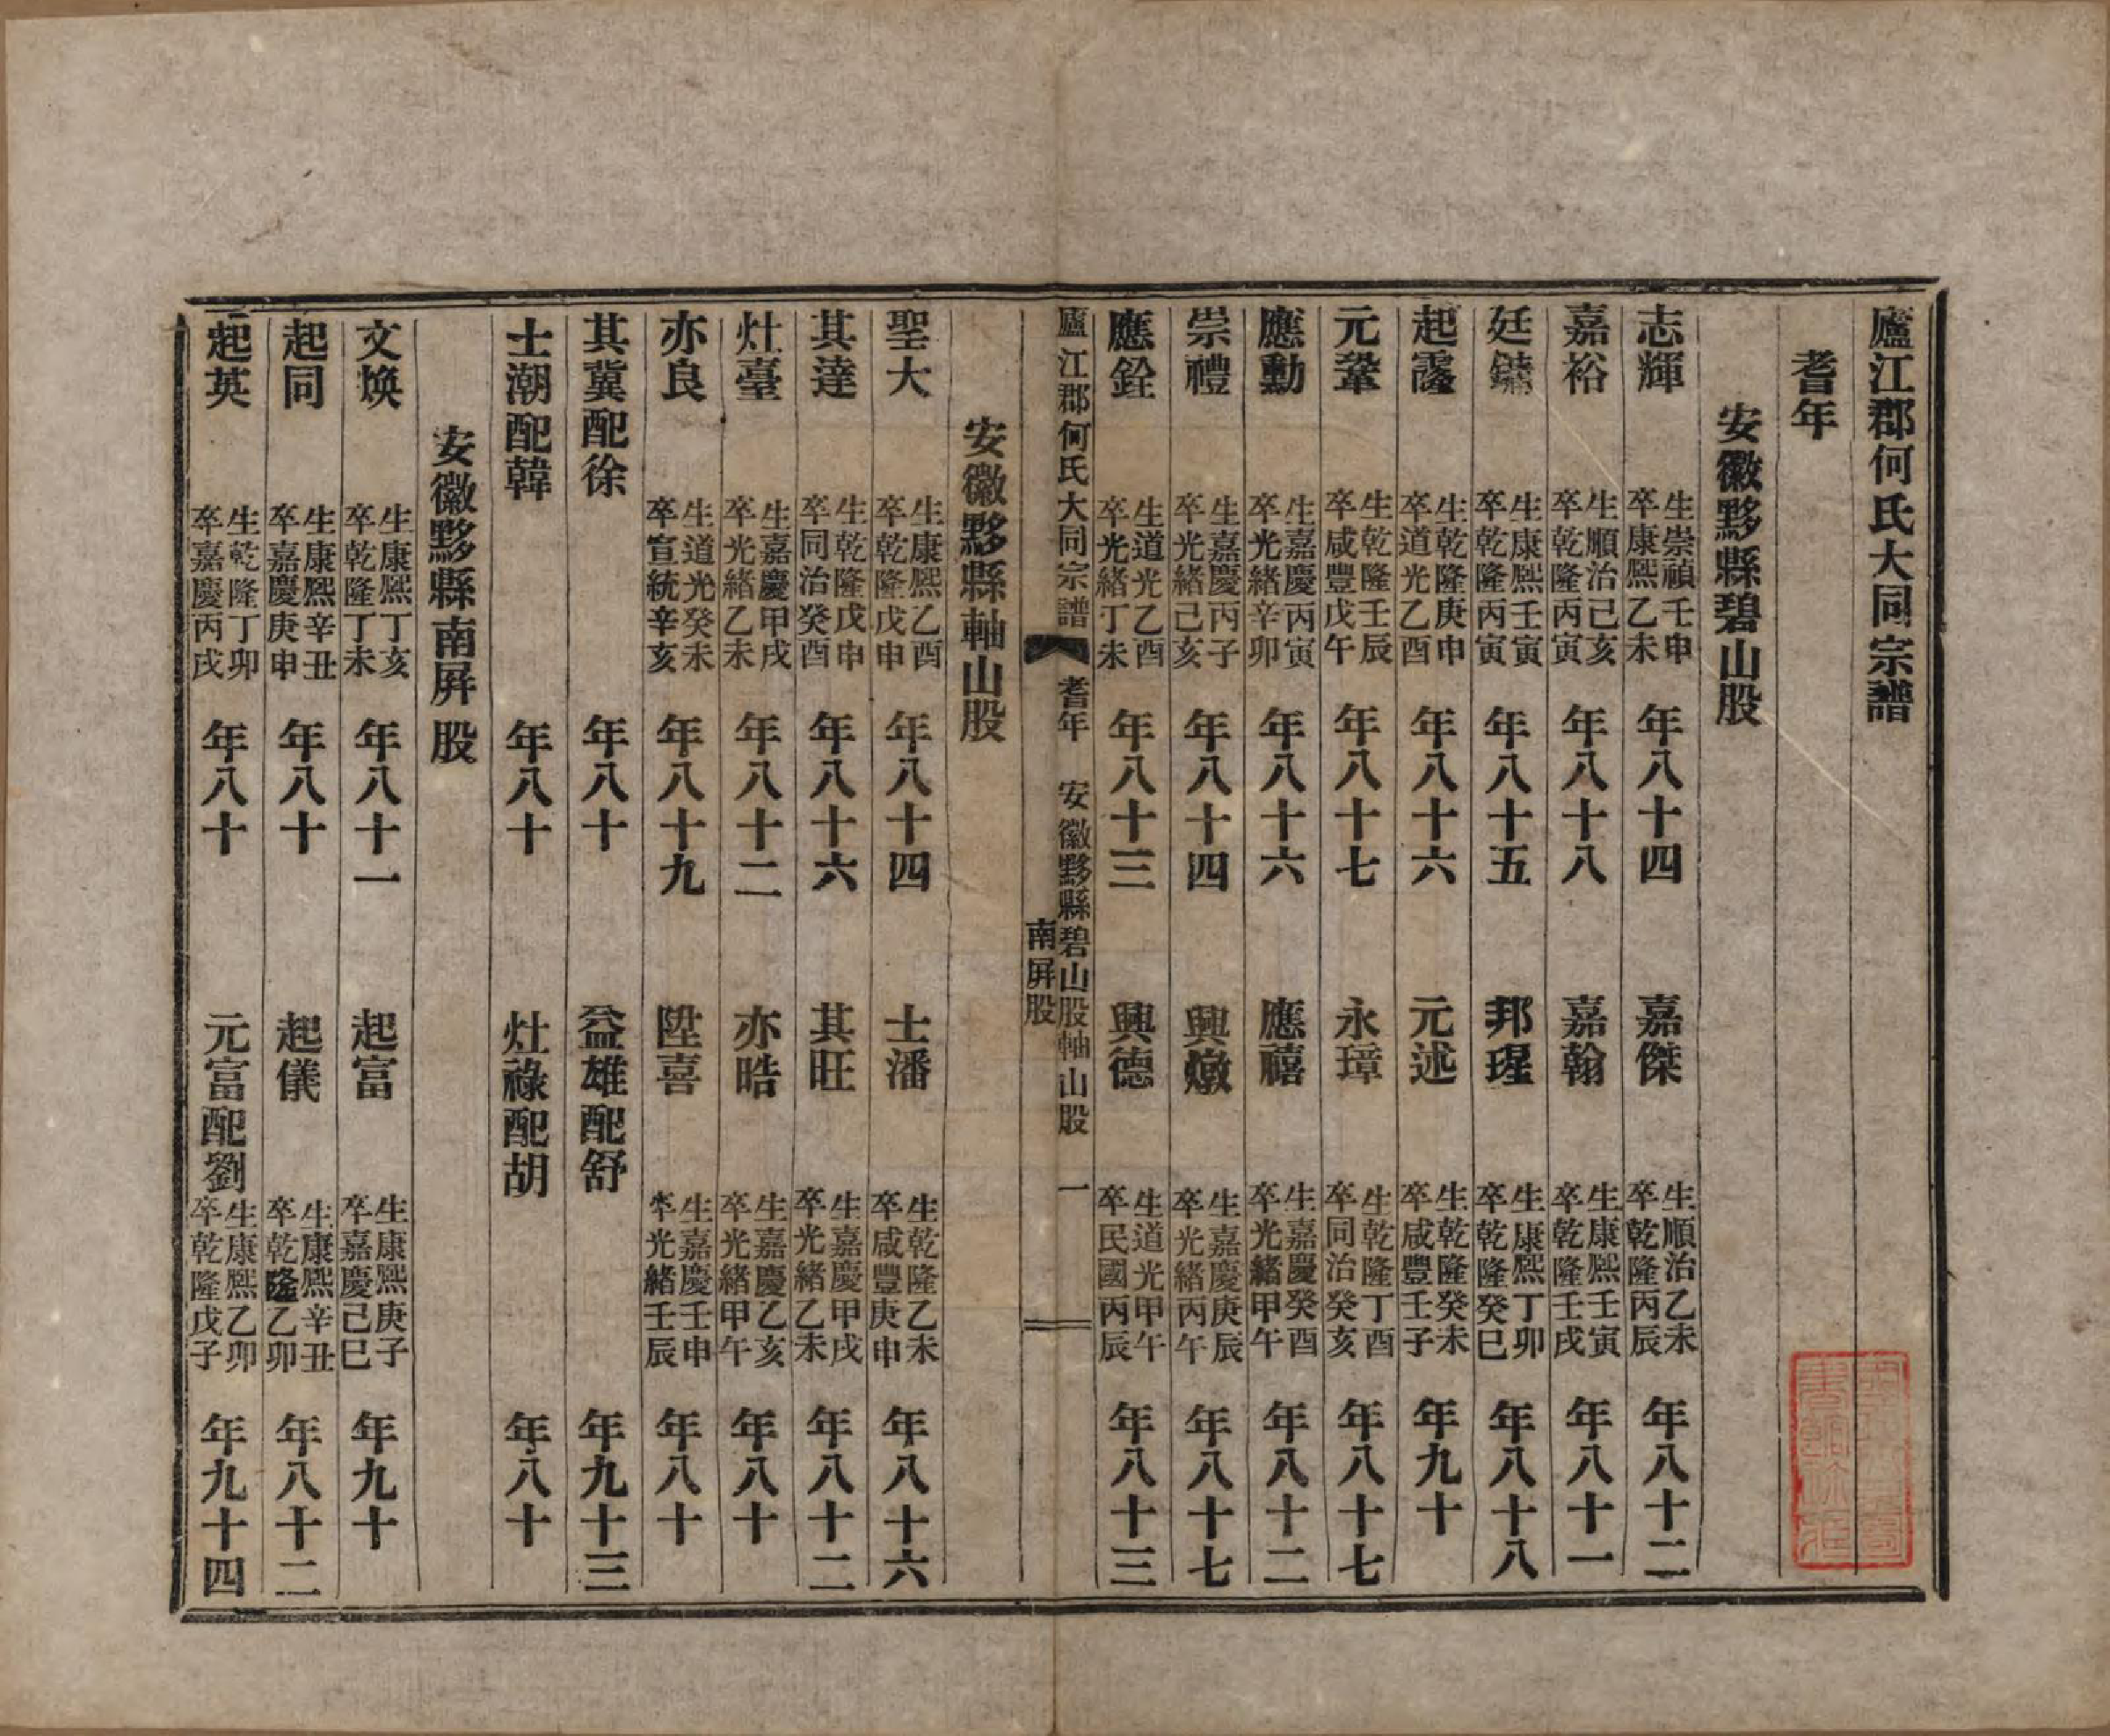 廬江郡何氏大同宗譜
耆年
安徽黟縣碧山股
志輝 生崇禎壬申 卒康熙乙未 年八十四 嘉傑 生順治乙未 卒乾隆丙辰 年八十二
嘉裕 生順治己亥 卒乾隆丙寅 年八十八 嘉翰 生康熙壬寅 卒乾隆壬戌 年八十一
廷鏽 生康熙壬寅 卒乾隆丙寅 年八十五 邦瑆 生康熙丁卯 卒乾隆癸巳 年八十八
起霳 生乾隆庚申 卒道光乙酉 年八十六 元述 生乾隆癸未 卒咸豐壬子 年九十
元鞏 生乾隆壬辰 卒咸豐戊午 年八十七 永璋 生乾隆丁酉 卒同治癸亥 年八十七
應勳 生嘉慶丙寅 卒光緒辛卯 年八十六 應禧 生嘉慶癸酉 卒光緒甲午 年八十二
崇禮 生嘉慶丙子 卒光緒己亥 年八十四 興燉 生嘉慶庚辰 卒光緒丙午 年八十七
應銓 生道光乙酉 卒光緒丁未 年八十三 興德 生道光甲午 卒民國丙辰 年八十三
廬江郡何氏大同宗譜 耆年 安徽黟縣碧山股軸山股 南屏股 一
安徽黟縣軸山股
聖大 生康熙乙酉 卒乾隆戊申 年八十四 士潘 生乾隆乙未 卒咸豐庚申 年八十六
其達 生乾隆戊申 卒同治癸酉 年八十六 其旺 生嘉慶甲戌 卒光緒乙未 年八十二
灶臺 生嘉慶甲戌 卒光緒乙未 年八十二 亦晧 生嘉慶乙亥 卒光緒甲午 年八十
亦良 生道光癸未 卒宣統辛亥 年八十九 陞喜 生嘉慶壬申 卒光緒壬辰 年八十
其冀配徐 年八十 益雄配舒 年九十三
士潮配韓 年八十 灶祿配胡 年八十
安徽黟縣南屏股
文煥 生康熙丁亥 卒乾隆丁未 年八十一 起富 生康熙庚子 卒嘉慶己巳 年九十
起同 生康熙辛丑 卒嘉慶庚申 年八十 起儀 生康熙辛丑 卒乾隆乙卯 年八十二
起英 生乾隆丁卯 卒嘉慶丙戌 年八十 元富配劉 生康熙乙卯 卒乾隆戊子 年九十四